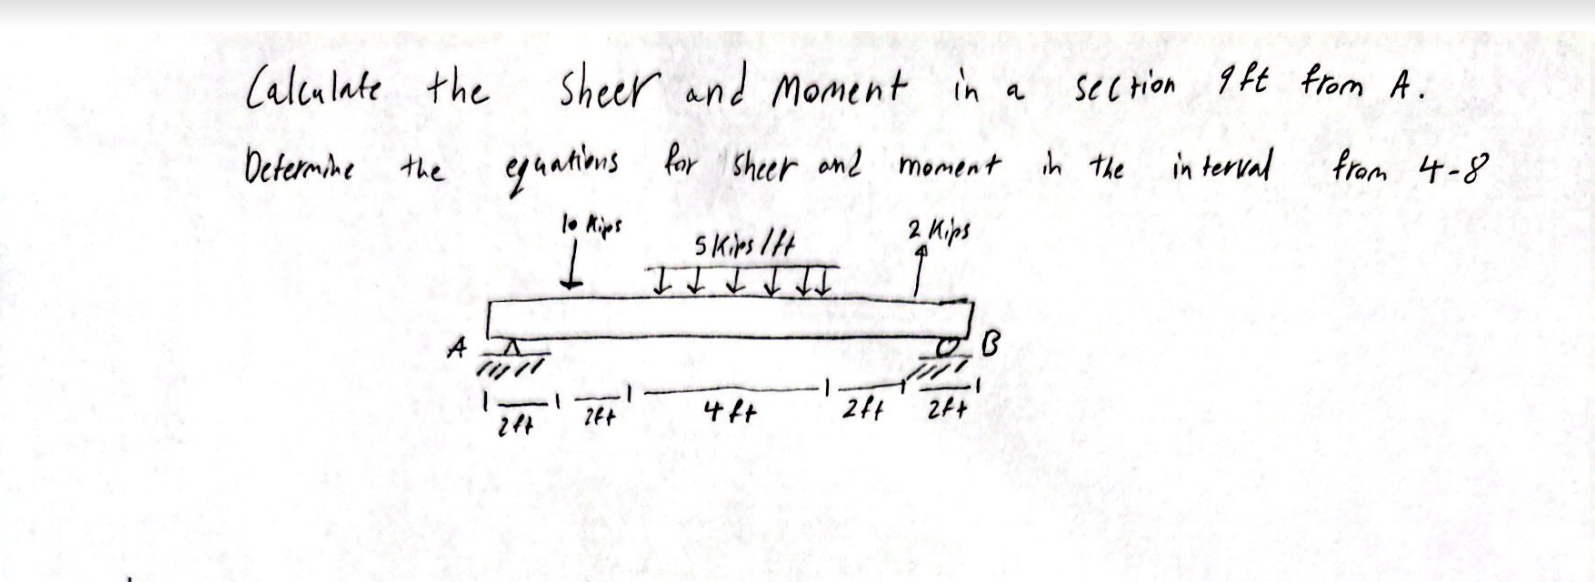 Calculate the sheer and moment in a section 9ft from A.
Determine the equations for sheer and moment in the interval from 4-8
10 Kips
5 Kips/ft
2 Kips
A
B
2ft 2ft 4ft 2ft 2ft